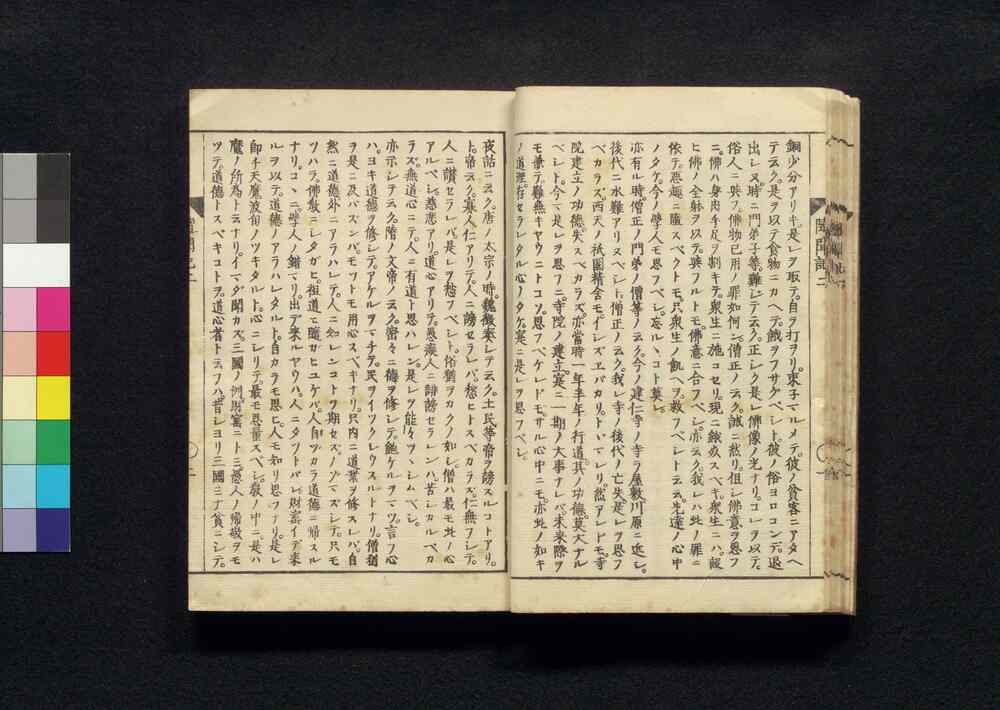 銅少分アリキ是レヲ取テ自ラ打ヲリ束子マルメテ彼ノ貧客ニアタヘ
テ云ク是ヲ以テ食物ニカヘテ餓ヲフサグベシト彼ノ俗ヨロコンデ退
出シヌ時ニ門弟子等難シテ云ク正シク是レ佛像ノ光ナリコレヲ以テ
俗人ニ與フ佛物已用ノ罪如何ン僧正ノ云ク誠ニ然リ但シ佛意ヲ思フ
ニ佛ハ身肉手足ヲ割キテ衆生ニ施コセリ現ニ餓死スベキ衆生ニハ設
ヒ佛ノ全躰ヲ以テ與フルトモ佛意ニ合フベシ亦云ク我レハ此ノ罪ニ
依テ惡趣ニ墮スベクトモ只衆生ノ飢ヘヲ救フベシト云云先達ノ心中
ノタケ今ノ學人モ思フベシ忘ルヽコト莫レ
亦有ル時僧正ノ門弟ノ僧等ノ云ク今ノ建仁寺ノ寺ラ屋敷川原ニ近シ
後代ニ水難アリヌベシト僧正ノ云ク我レ寺ノ後代ノ亡失是レヲ思フ
ベカラズ西天ノ祇園精舎モイシズエバカリトヾマレリ然アレドモ寺
院建立ノ功德失スベカラズ亦當時一年半年ノ行道其ノ功德莫大ナル
ベシト今マ是レヲ思フニ寺院ノ建立寔ニ一期ノ大事ナレバ未來際ヲ
モ兼テ難無キヤウニトコソ思フベケレドモサル心中ニモ亦此ノ如キ
ノ道理存セラレタル心ノタケ寔ニ是レヲ思フベシ
夜話ニ云ク唐ノ太宗ノ時魏徴奏シテ云ク土民等帝ヲ謗スルコトアリ
ト帝云ク寡人仁アリテ人ニ謗セラレバ愁ヒトスベカラズ仁無フシテ
人ニ讃セラレバ是レヲ愁フベシト俗猶ヲカクノ如シ僧ハ最モ此ノ心
アルベシ慈悲アリ道心アリテ愚癡人ニ誹謗セラレンハ苦シカルベカ
ラズ無道心ニテ人ニ有道ト思ハレン是レヲ能々ツヽシムベシ
亦示シテ云ク隋ノ文帝ノ云ク密々ニ德ヲ修シテ飽ケルヲマツ言フ心
ハヨキ道德ヲ修シテアケルヲマチテ民ヲイツクシウスルトナリ僧猶
ヲ是ニ及バズンバモツトモ用心スベキナリ只内ニ道業ヲ修スレバ自
然ニ道德外ニアラハレテ人ニ知レンコトヲ期セズノゾマズシテ只モ
ツハラ佛敎ニシタガヒ祖道ニ隨カヒユケバ人自ツカラ道德ニ帰スル
ナリコヽニ學人ノ錯マリ出デ來ルヤウハ人ニタツトバレ財寳イデ來
ルヲ以テ道德ノアラハレタルト自カラモ思ヒ人モ知リ思フナリ是レ
即チ天魔波旬ノツキタルト心ニシリテ最モ思量スベシ敎ノ中ニ是ハ
魔ノ所為ト云ナリイマダ聞カズ三國ノ例財寳ニトミ愚人ノ帰敬ヲモ
ツテ道德トスベキコトヲ道心者ト云フハ昔シヨリ三國ミナ貧ニシテ